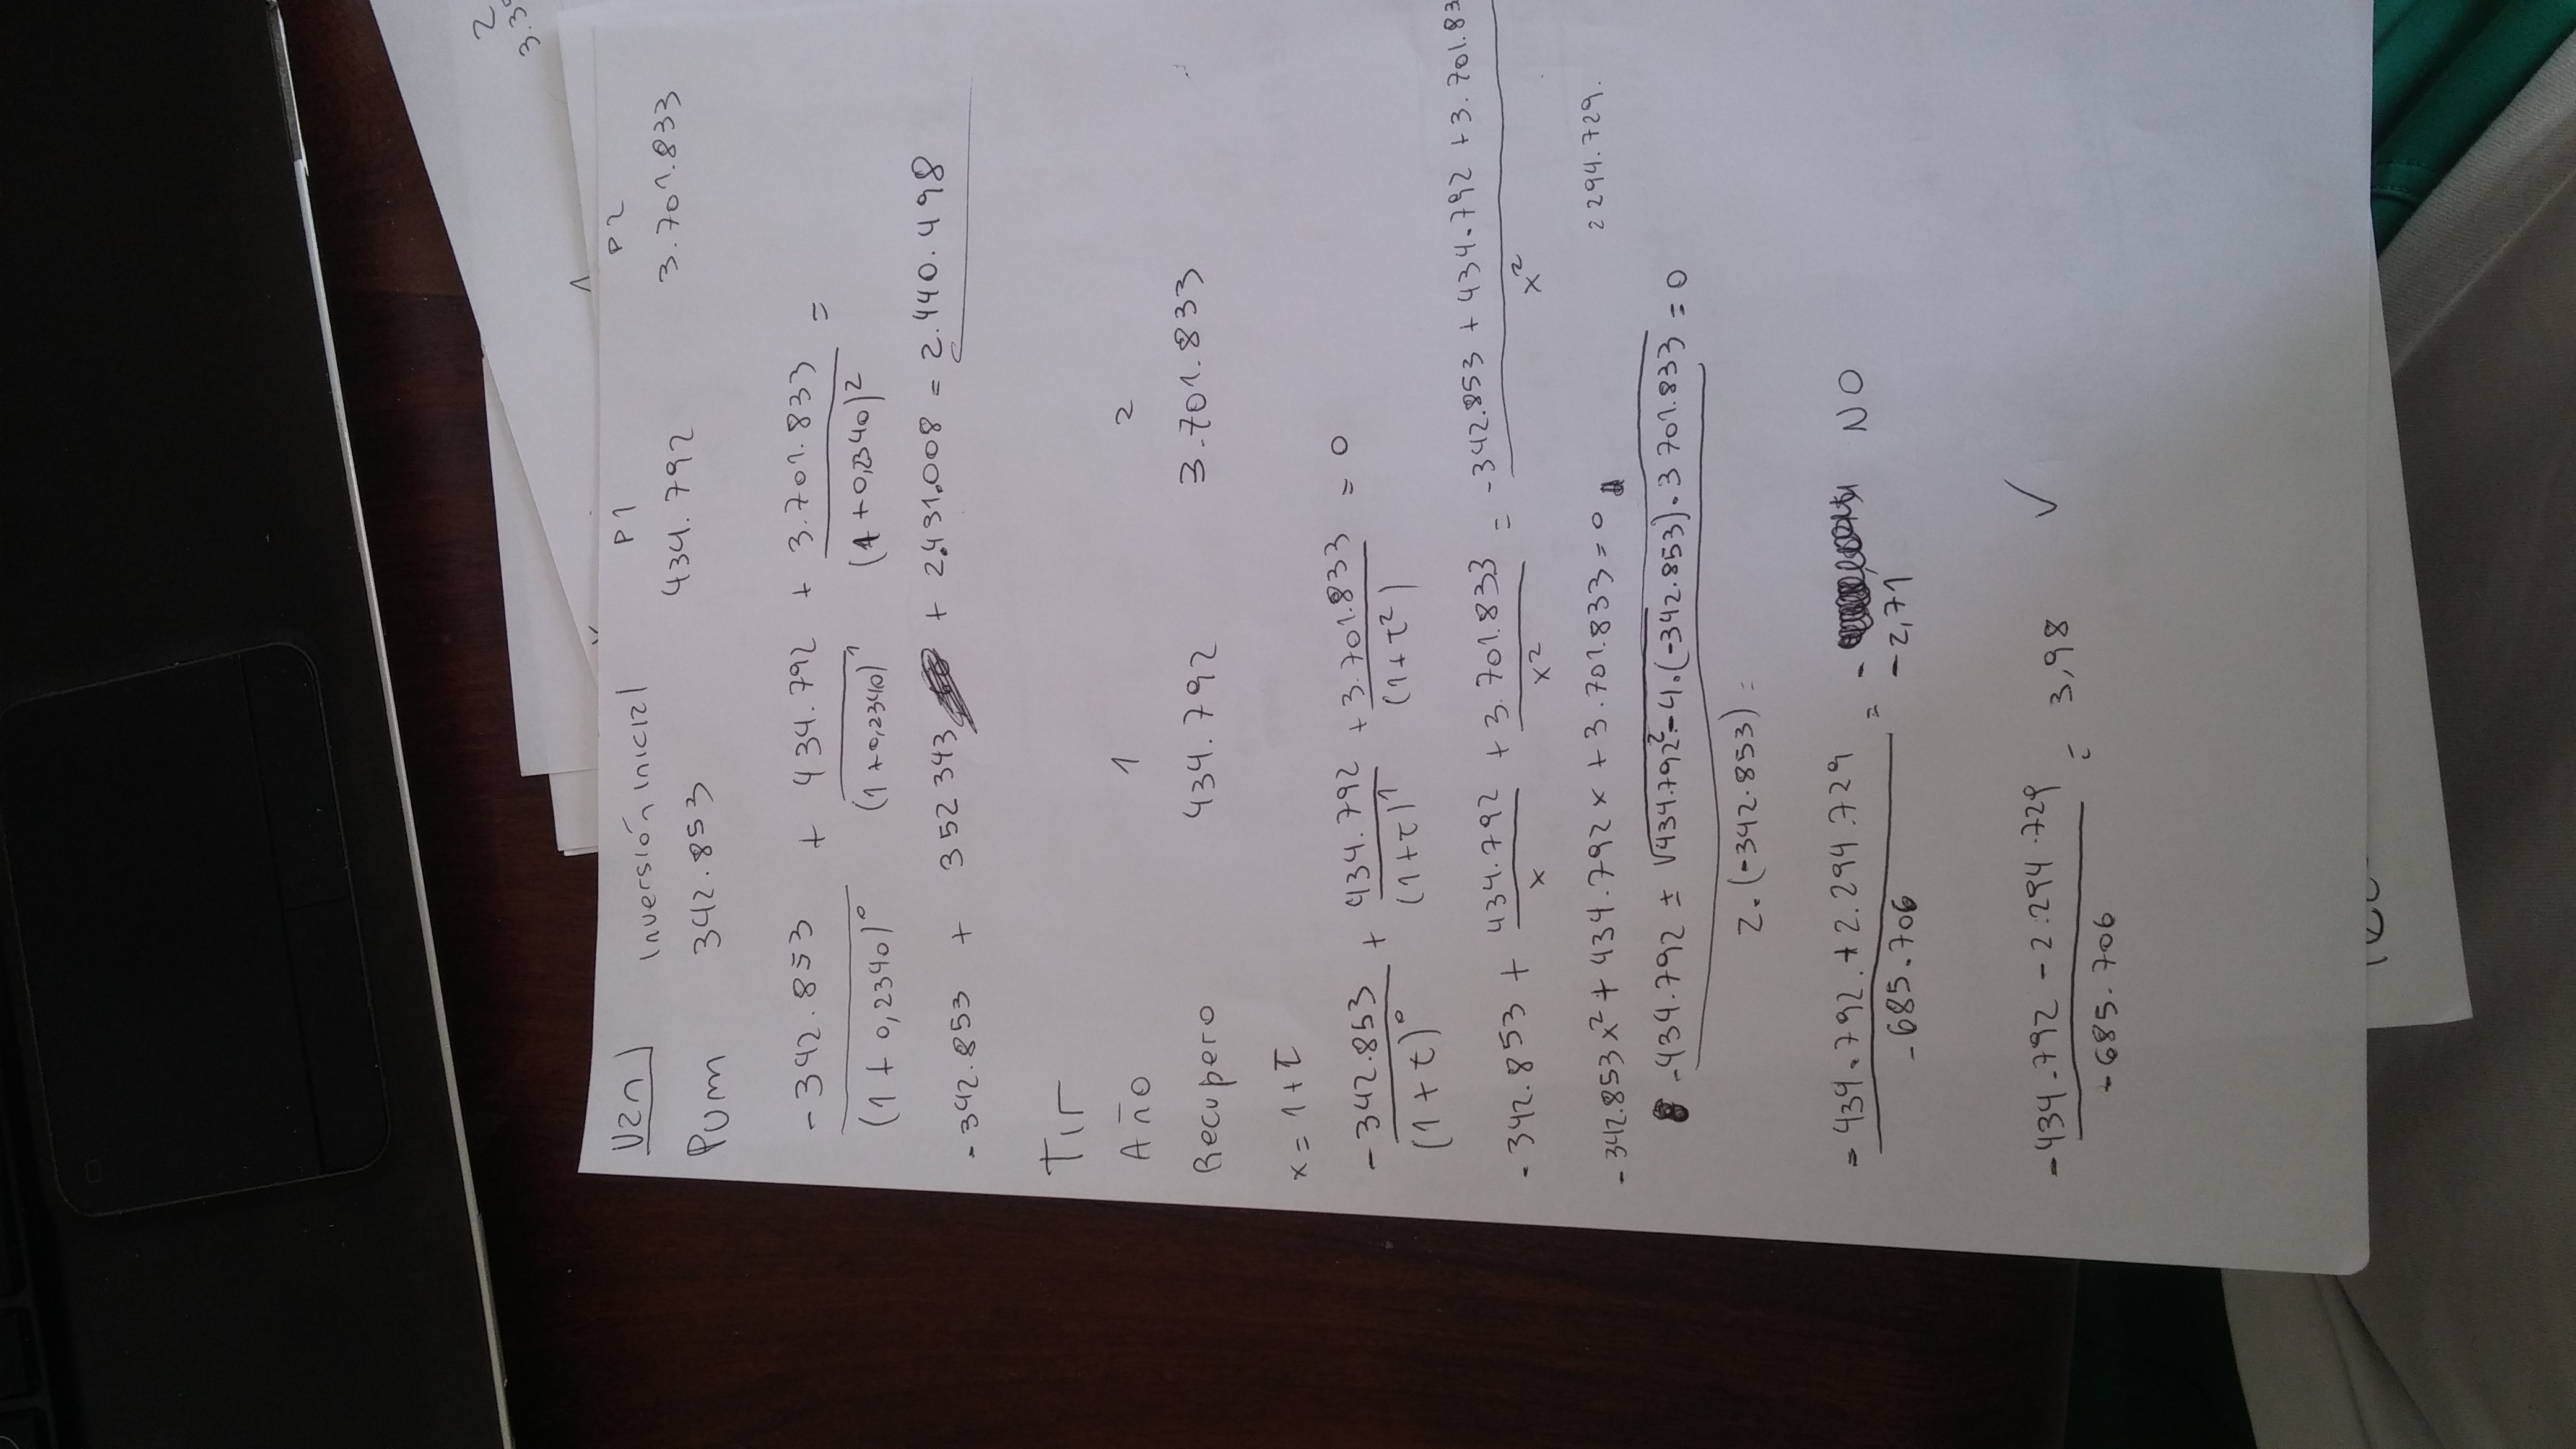 2
3.3
Van
Inversión inicial P1 P2
Pum 342.853 434.792 3.701.833
-342.853 + 434.792 + 3.701.833 =
(1 + 0,2340)⁰ (1+0,2340)¹ (1+0,2340)²
-342.853 + 352343 + 2.431.008 = 2.440.498
Tir
Año 1 2
Recupero 434.792 3.701.833
x = 1+τ
-342.853 + 434.792 + 3.701.833 = 0
(1+τ)⁰ (1+τ)¹ (1+τ²)
-342.853 + 434.792 + 3.701.833 = -342.853 + 434.792 + 3.701.83
x x² x²
-342.853x² + 434.792x + 3.701.833 = 0 2294.729.
-434.792 ± √434.792²-4.(-342.853).3 701.833 = 0
2.(-342.853) =
-434.792 + 2.294.729 = - NO
-685.706 -2,71
-434.792 - 2.294.729 = 3,98 ✓
-685.706